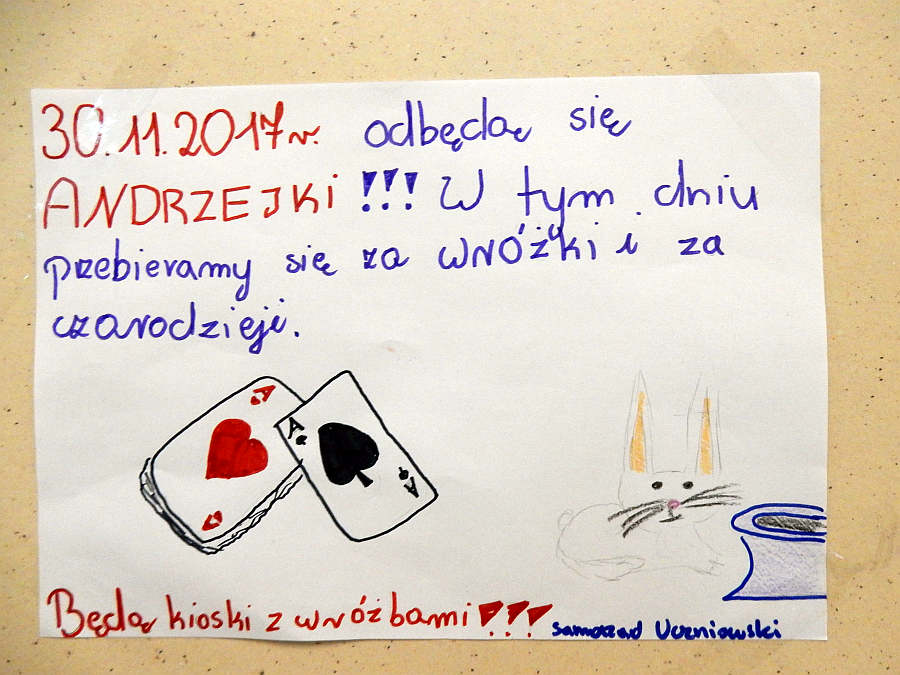 30.11.2017r. odbędą się
ANDRZEJKI !!! W tym dniu
przebieramy się za wróżki i za
czarodzieji.
A
A
A
Będą kioski z wróżbami !!!
samorząd Uczniowski